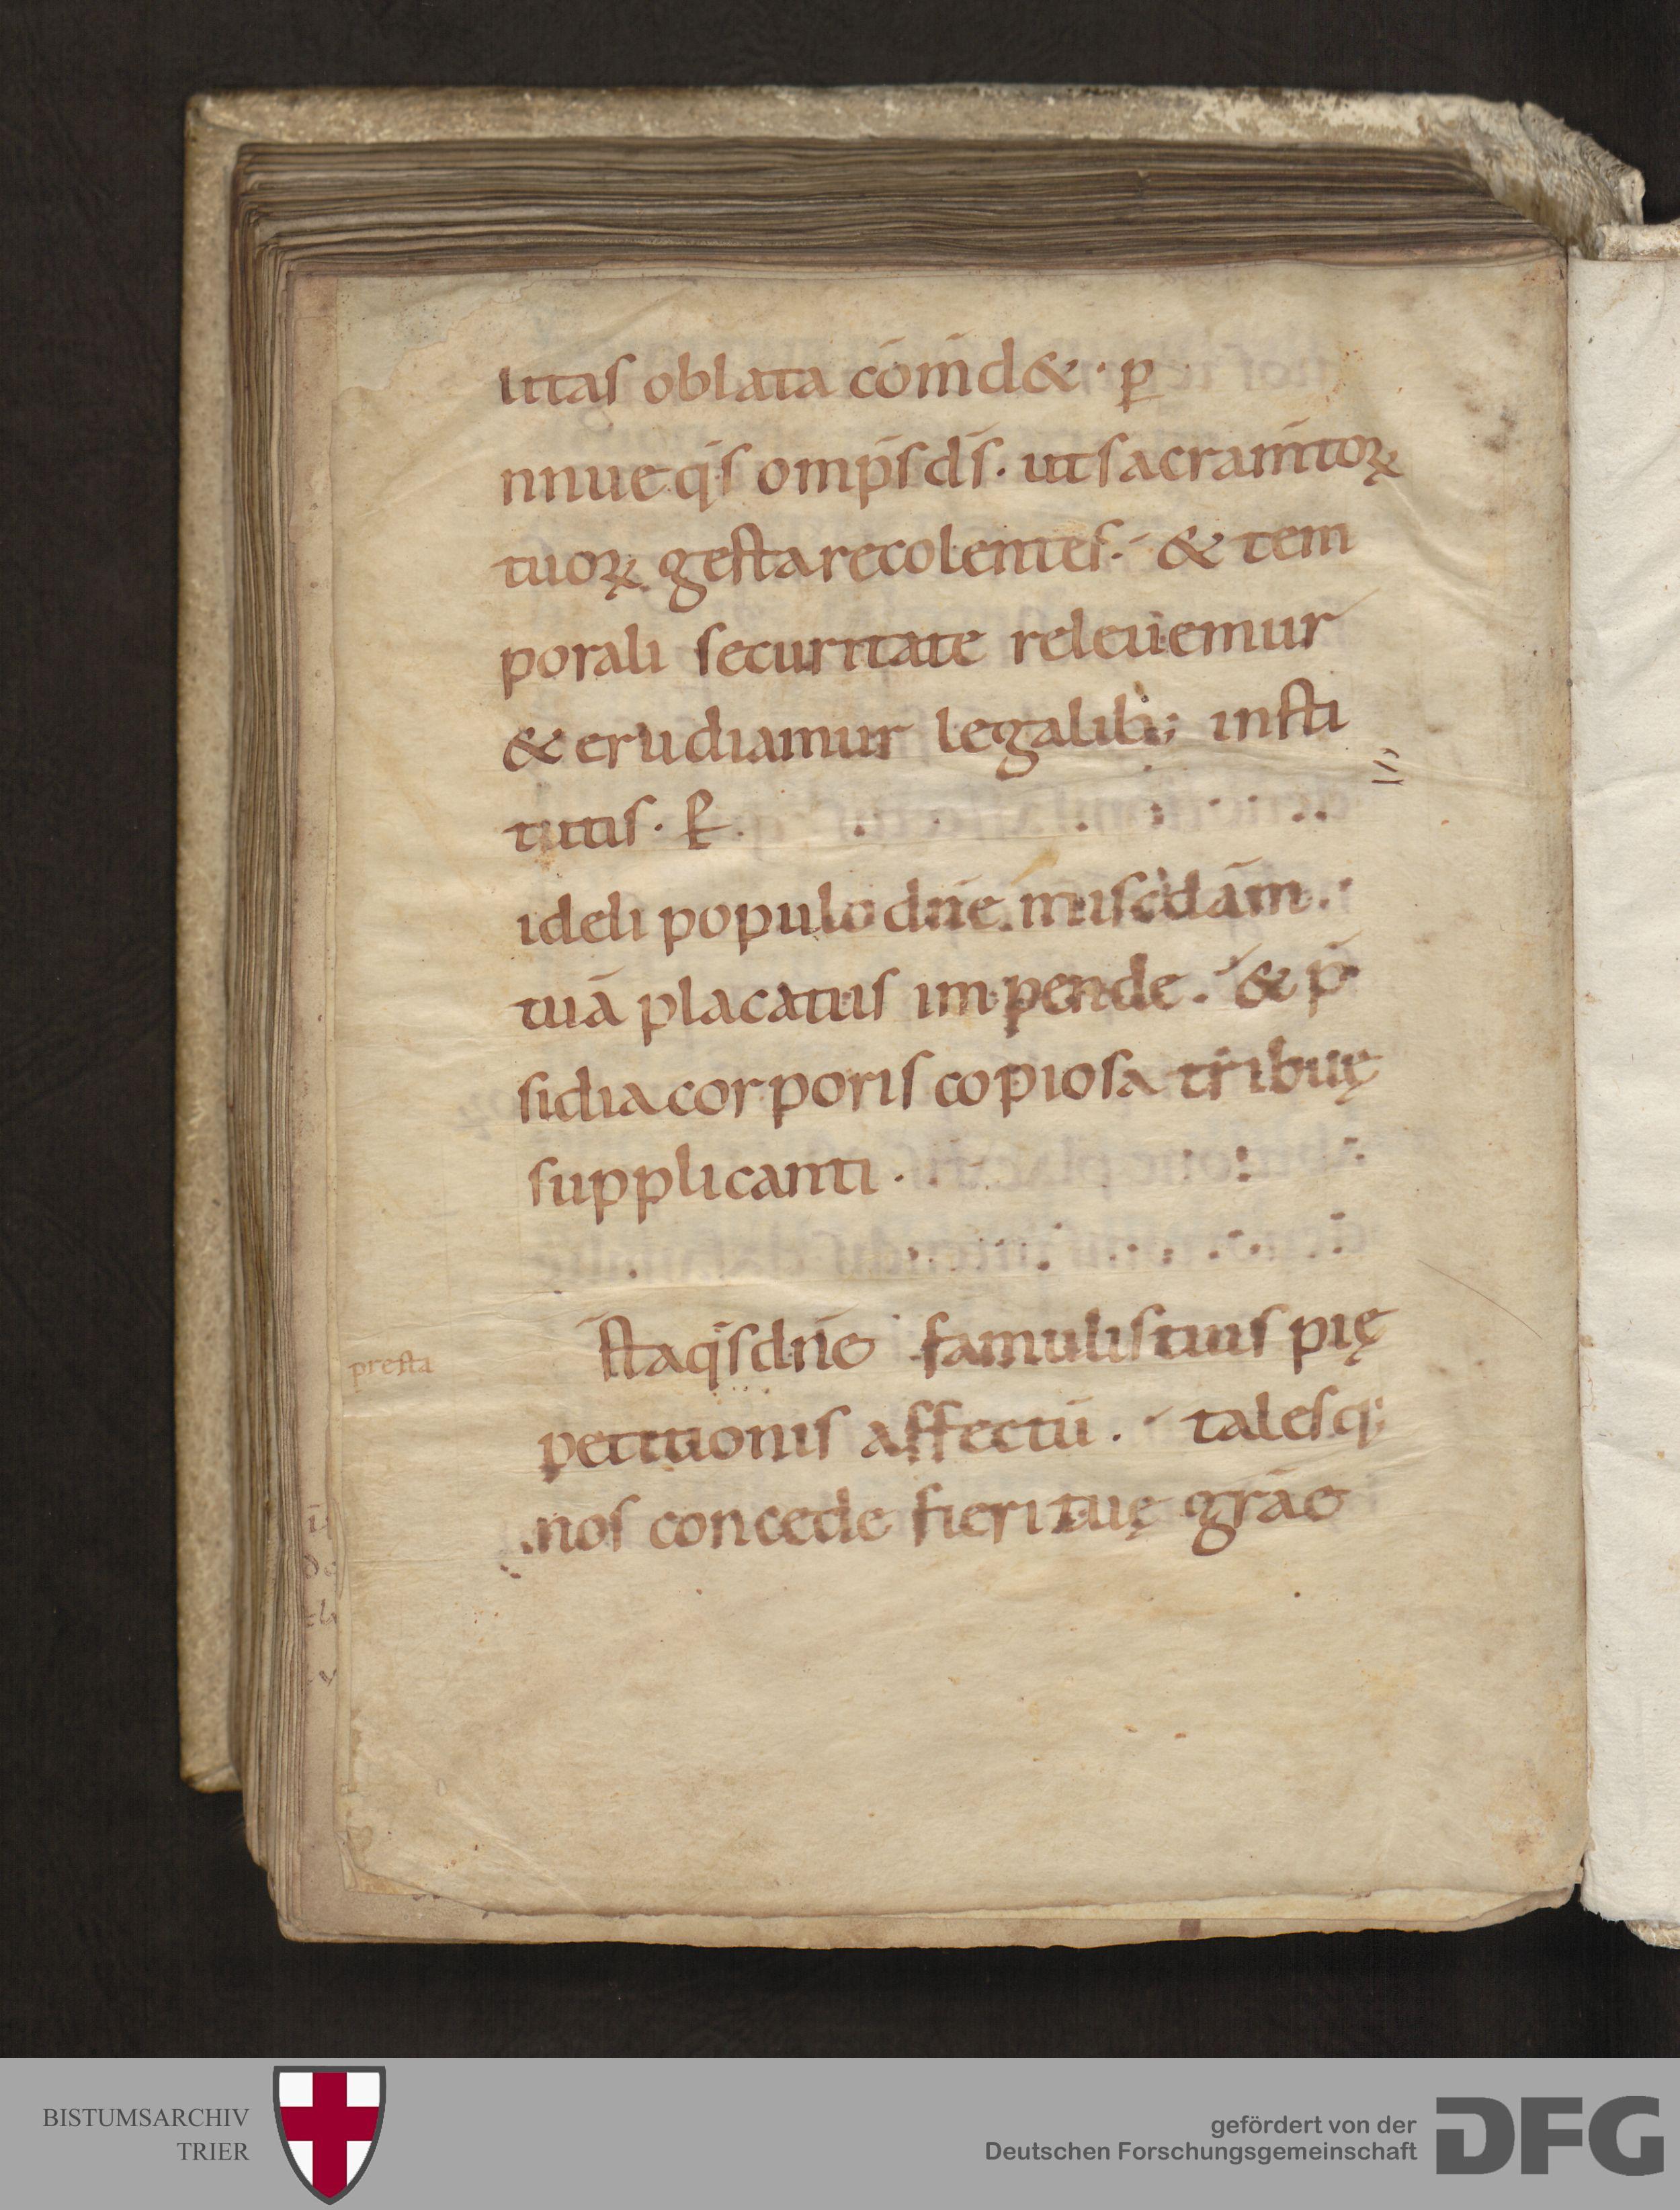 litas oblata cōm̄d&· ꝑ
nnue q̄s omp̄s d̄s· ut sacram̄toꝝ
tuoꝝ gesta recolentes· & tem
porali securitate releuemur
& erudiamur legalib; insti
tutis· P̱
ideli populo dn̄e misc̄dām·
tuā placatus impende· & p̄
sidia corporis copiosa tribuę
supplicanti·
sta q̄s dn̄e famulis tuis pię
presta
petitionis affectū· talesq;
nos concede fieri tuę grāe
BISTUMSARCHIV
TRIER
gefördert von der
Deutschen Forschungsgemeinschaft
DFG